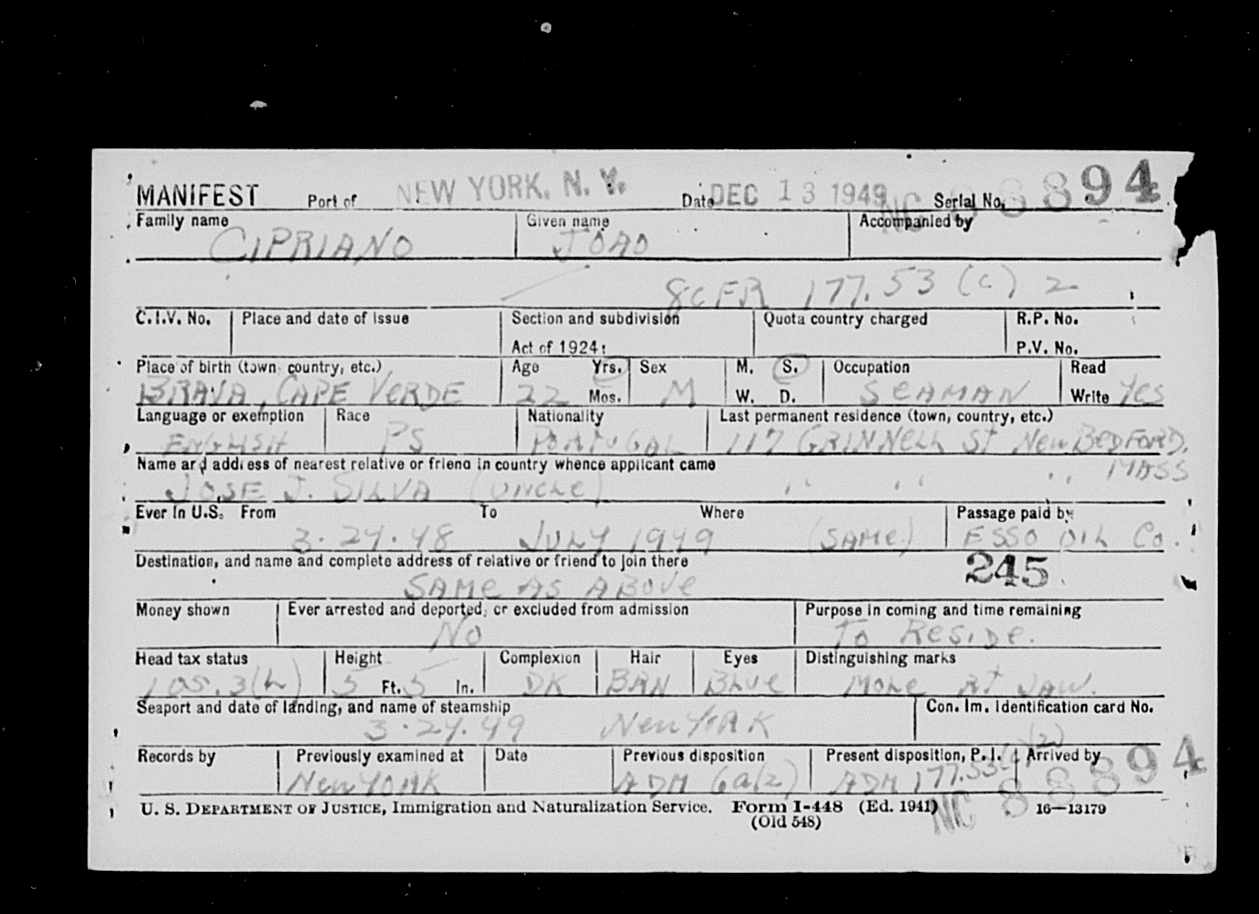 MANIFEST Port of NEW YORK, N. Y. Date DEC 13 1949 Serial No. NC 88894
Family name Given name Accompanied by
CIPRIANO JOAO
8 CFR 177.53 (c) 2
C.I.V. No. Place and date of issue Section and subdivision Quota country charged R.P. No.
Act of 1924: P.V. No.
Place of birth (town, country, etc.) Age Yrs. Sex M. S. Occupation Read
BRAVA, CAPE VERDE 22 Mos. M W. D. SEAMAN Write Yes
Language or exemption Race Nationality Last permanent residence (town, country, etc.)
ENGLISH PS PORTUGAL 117 GRINNELL ST NEW BEDFORD.
Name and address of nearest relative or friend in country whence applicant came
MASS
JOSE J. SILVA (UNCLE) " " " " " "
Ever in U.S. From To Where Passage paid by
3.24.48 JULY 1949 (SAME) ESSO OIL Co.
Destination, and name and complete address of relative or friend to join there
SAME AS ABOVE 245
Money shown Ever arrested and deported, or excluded from admission Purpose in coming and time remaining
NO TO RESIDE.
Head tax status Height Complexion Hair Eyes Distinguishing marks
105.3(b) 5 Ft. 5 In. DK BRN BLUE MOLE RT JAW.
Seaport and date of landing, and name of steamship Con. Im. Identification card No.
3.24.49 NEW YORK
Records by Previously examined at Date Previous disposition Present disposition, P.I. Arrived by
NEW YORK ADM 6a(2) ADM 177.53(c)(2) NC 88894
U. S. DEPARTMENT OF JUSTICE, Immigration and Naturalization Service. Form I-448 (Ed. 1941) 16—13179
(Old 548)